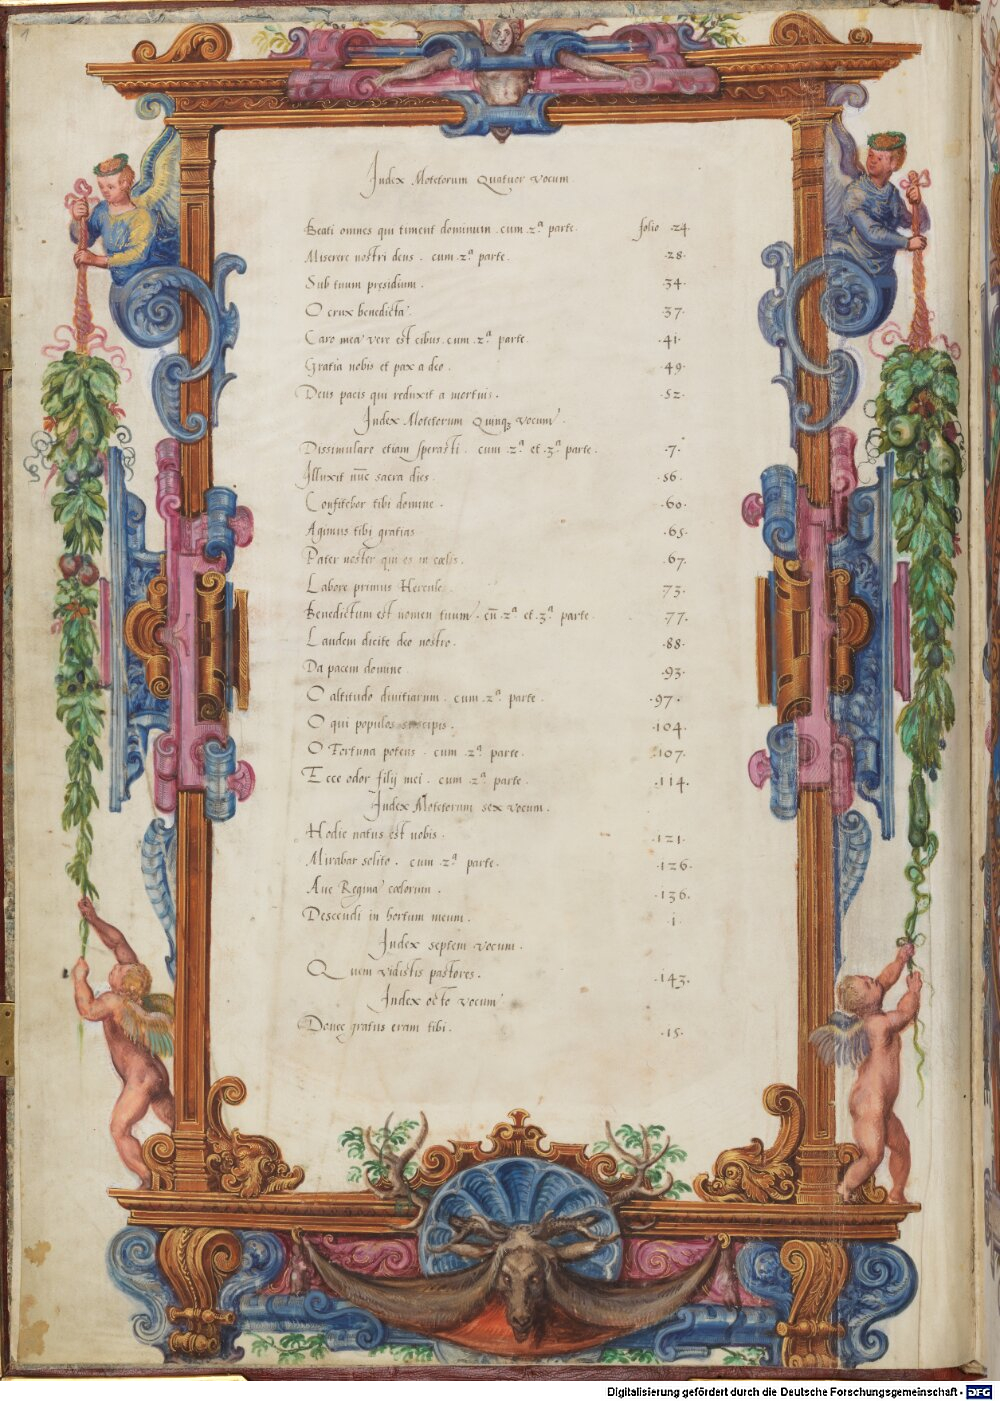 1
Index Motetorum Quatuor vocum.
Beati omnes qui timent dominum. cum .2.ª parte. folio .24.
Miserere nostri deus. cum .2.ª parte. .28.
Sub tuum presidium. .34.
O crux benedicta. .37.
Caro mea vere est cibus. cum .2.ª parte. .41.
Gratia nobis et pax a deo. .49.
Deus pacis qui reduxit a mortuis. .52.
Index Motetorum Quinq3 vocum.
Dissimulare etiam sperasti. cum .2.ª et .3.ª parte. .7.
Illuxit nūc sacra dies. .56.
Confitebor tibi domine. .60.
Agimus tibi gratias .65.
Pater noster qui es in cœlis. .67.
Labore primus Hercule. .73.
Benedictum est nomen tuum. cū .2.ª et .3.ª parte. .77.
Laudem dicite deo nostro. .88.
Da pacem domine. .93.
O altitudo divitiarum. cum .2.ª parte. .97.
O qui populos suscipis. .104.
O Fortuna potens. cum .2.ª parte. .107.
Ecce odor filij mei. cum .2.ª parte. .114.
Index Motetorum sex vocum.
Hodie natus est nobis. .121.
Mirabar solito. cum .2.ª parte. .126.
Ave Regina cœlorum. .136.
Descendi in hortum meum. .1.
Index septem vocum.
Quem vidistis pastores. .143.
Index octo vocum
Donec gratus eram tibi. .15.
Digitalisierung gefördert durch die Deutsche Forschungsgemeinschaft - DFG